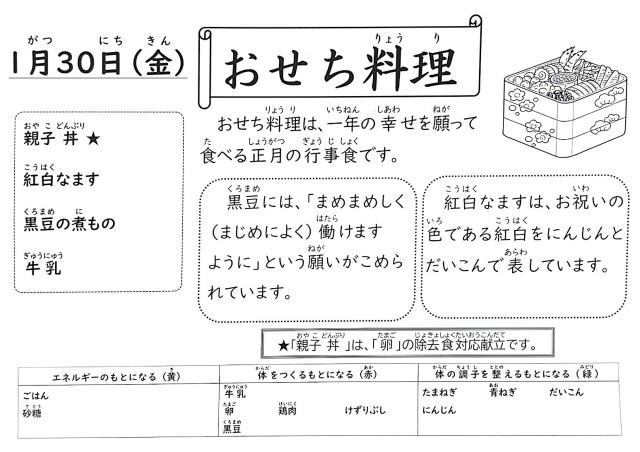 1月30日(金)
おせち料理
親子丼★
紅白なます
黒豆の煮もの
牛乳
おせち料理は、一年の幸せを願って
食べる正月の行事食です。
黒豆には、「まめまめしく
(まじめによく)働けます
ように」という願いがこめら
れています。
紅白なますは、お祝いの
色である紅白をにんじんと
だいこんで表しています。
★「親子丼」は、「卵」の除去食対応献立です。
エネルギーのもとになる(黄) 体をつくるもとになる(赤) 体の調子を整えるもとになる(緑)
ごはん 牛乳 たまねぎ 青ねぎ だいこん
砂糖 卵 鶏肉 けずりぶし にんじん
黒豆